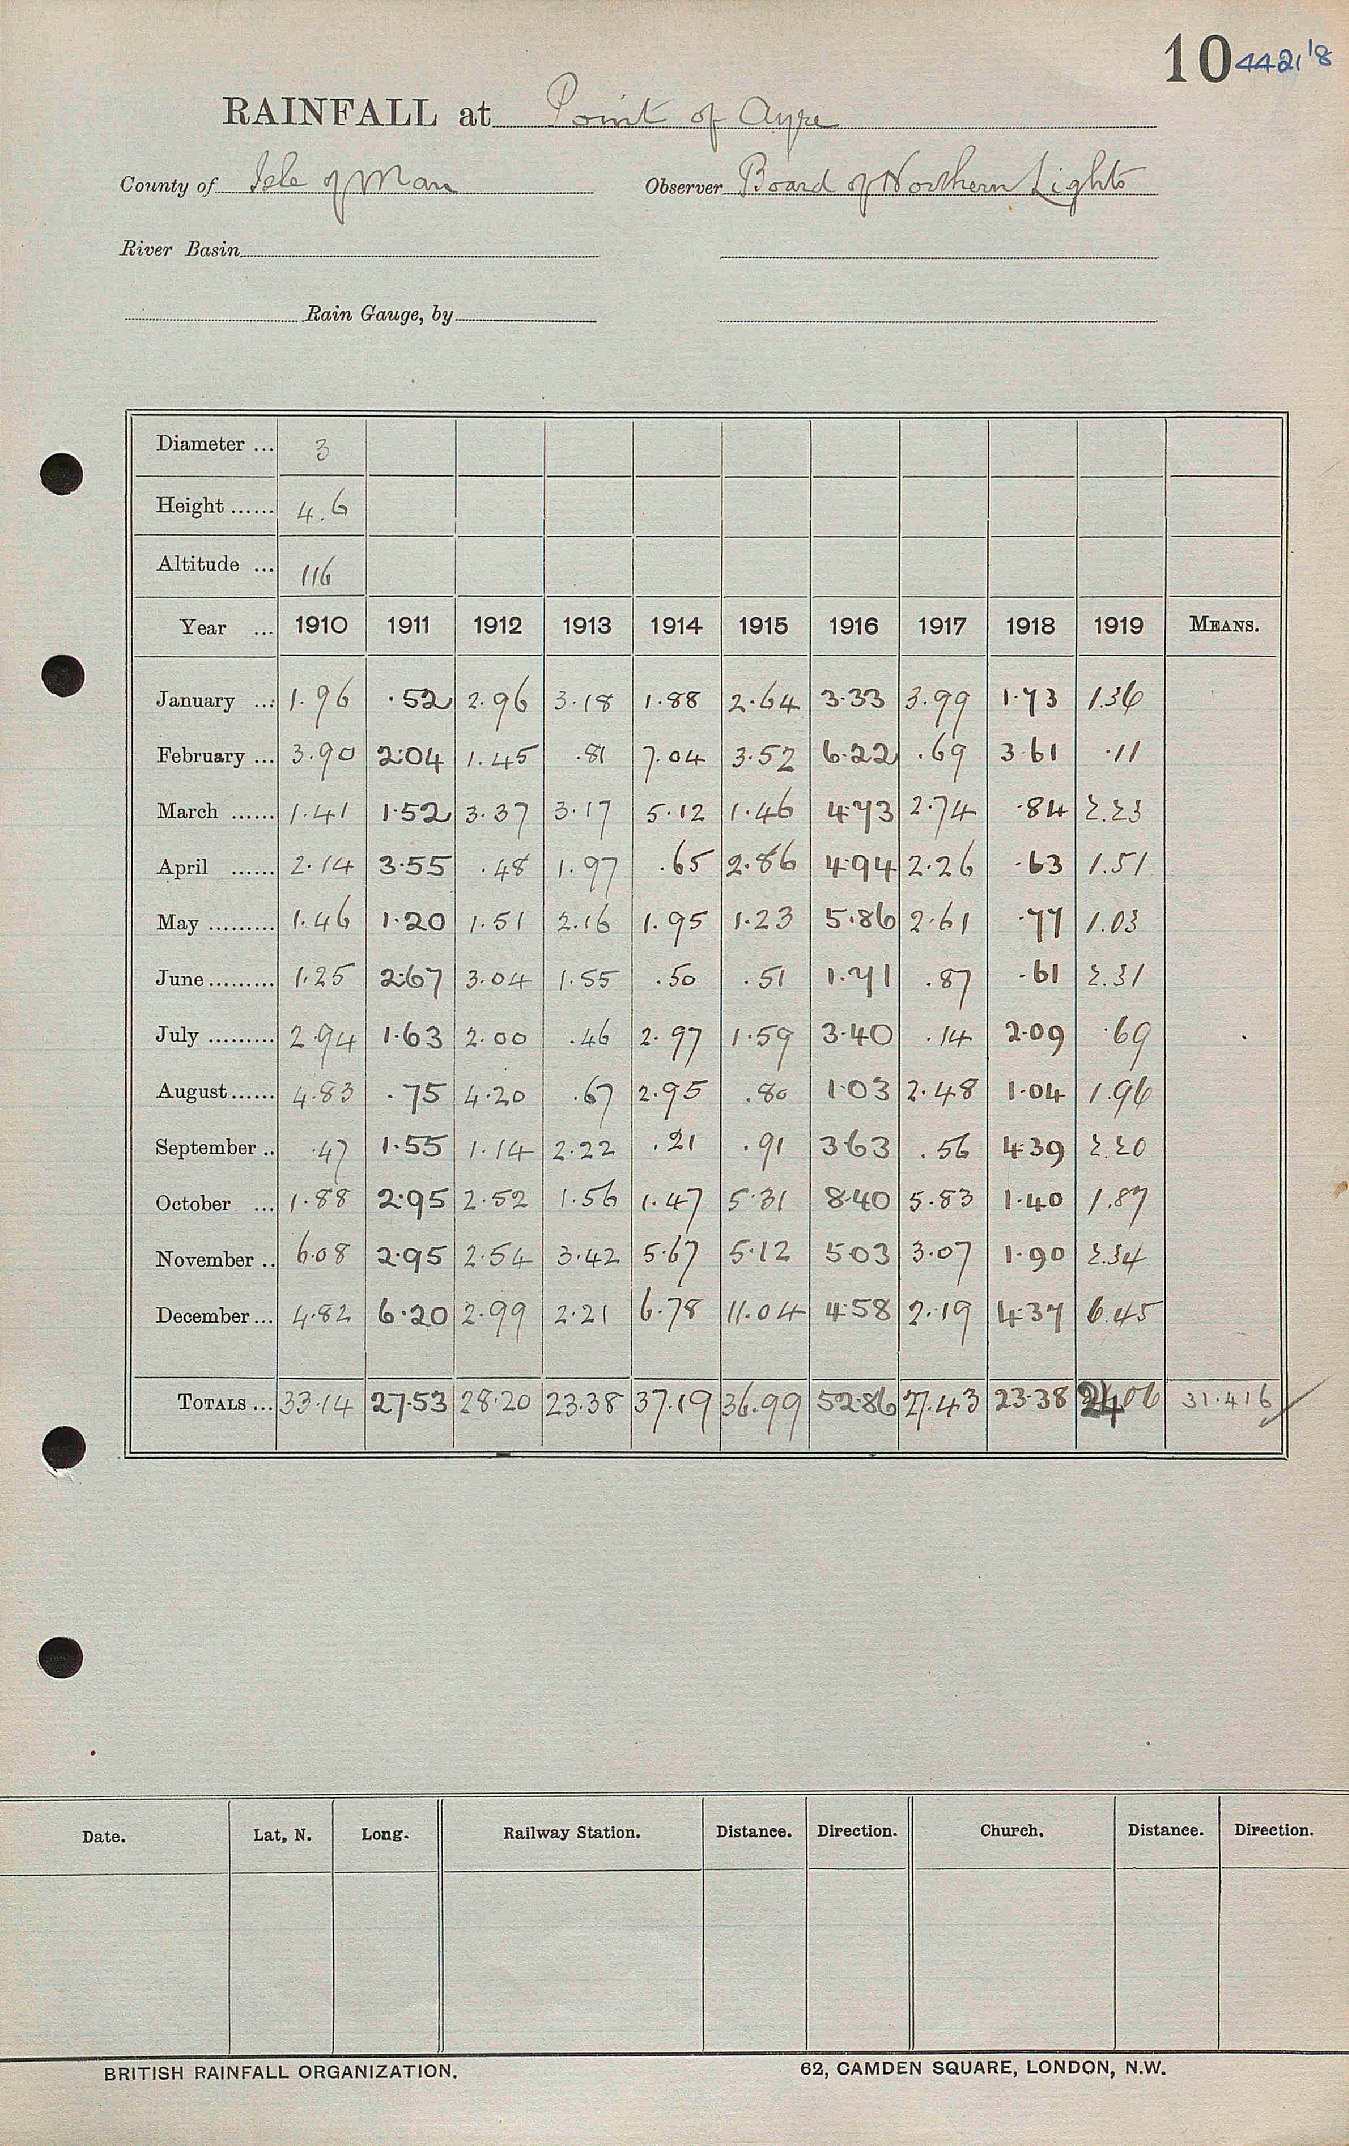 10 4421/8
RAINFALL at Point of Ayre
County of Isle of Man Observer Board of Northern Lights
River Basin
Rain Gauge, by
Diameter ... 3
Height ...... 4.6
Altitude ... 116
Year ... 1910 1911 1912 1913 1914 1915 1916 1917 1918 1919 MEANS.
January ... 1.96 .52 2.96 3.18 1.88 2.64 3.33 3.99 1.73 1.36
February ... 3.90 2.04 1.45 .81 7.04 3.52 6.22 .69 3.61 .11
March ...... 1.41 1.52 3.37 3.17 5.12 1.46 4.73 2.74 .84 2.23
April ...... 2.14 3.55 .48 1.97 .65 2.86 4.94 2.26 .63 1.51
May ......... 1.46 1.20 1.51 2.16 1.95 1.23 5.86 2.61 .77 1.03
June ......... 1.25 2.67 3.04 1.55 .50 .51 1.71 .87 .61 2.31
July ......... 2.94 1.63 2.00 .46 2.97 1.59 3.40 .14 2.09 .69
August ...... 4.83 .75 4.20 .67 2.95 .80 1.03 2.48 1.04 1.96
September .. .47 1.55 1.14 2.22 .21 .91 3.63 .56 4.39 2.20
October ... 1.88 2.95 2.52 1.56 1.47 5.31 8.40 5.83 1.40 1.87
November .. 6.08 2.95 2.54 3.42 5.67 5.12 5.03 3.07 1.90 2.34
December ... 4.82 6.20 2.99 2.21 6.78 11.04 4.58 2.19 4.37 6.45
TOTALS ... 33.14 27.53 28.20 23.38 37.19 36.99 52.86 27.43 23.38 24.06 31.416
Date. Lat. N. Long. Railway Station. Distance. Direction. Church. Distance. Direction.
BRITISH RAINFALL ORGANIZATION. 62, CAMDEN SQUARE, LONDON, N.W.